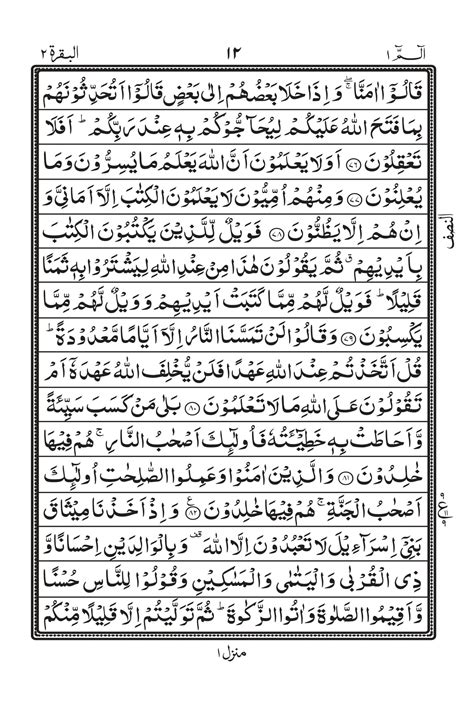 الٓمّٓ ١ ١٢ البقرة ٢
قَالُوْۤا اٰمَنَّا ۖۚ وَاِذَا خَلَا بَعْضُهُمْ اِلٰى بَعْضٍ قَالُوْۤا اَتُحَدِّثُوْنَهُمْ
بِمَا فَتَحَ اللّٰهُ عَلَيْكُمْ لِيُحَآجُّوْكُمْ بِهٖ عِنْدَ رَبِّكُمْ ؕ اَفَلَا
تَعْقِلُوْنَ ﴿۷۶﴾ اَوَلَا يَعْلَمُوْنَ اَنَّ اللّٰهَ يَعْلَمُ مَا يُسِرُّوْنَ وَمَا
يُعْلِنُوْنَ ﴿۷۷﴾ وَمِنْهُمْ اُمِّيُّوْنَ لَا يَعْلَمُوْنَ الْكِتٰبَ اِلَّاۤ اَمَانِىَّ وَ
اِنْ هُمْ اِلَّا يَظُنُّوْنَ ﴿۷۸﴾ فَوَيْلٌ لِّلَّذِيْنَ يَكْتُبُوْنَ الْكِتٰبَ
بِاَيْدِيْهِمْ ۗ ثُمَّ يَقُوْلُوْنَ هٰذَا مِنْ عِنْدِ اللّٰهِ لِيَشْتَرُوْا بِهٖ ثَمَنًا
قَلِيْلًا ؕ فَوَيْلٌ لَّهُمْ مِّمَّا كَتَبَتْ اَيْدِيْهِمْ وَوَيْلٌ لَّهُمْ مِّمَّا
يَكْسِبُوْنَ ﴿۷۹﴾ وَقَالُوْا لَنْ تَمَسَّنَا النَّارُ اِلَّاۤ اَيَّامًا مَّعْدُوْدَةً ؕ
قُلْ اَتَّخَذْتُمْ عِنْدَ اللّٰهِ عَهْدًا فَلَنْ يُّخْلِفَ اللّٰهُ عَهْدَهٗۤ اَمْ
تَقُوْلُوْنَ عَلَى اللّٰهِ مَا لَا تَعْلَمُوْنَ ﴿۸۰﴾ بَلٰى مَنْ كَسَبَ سَيِّئَةً
وَّاَحَاطَتْ بِهٖ خَطِيْٓـئَتُهٗ فَاُولٰٓئِكَ اَصْحٰبُ النَّارِ ۚ هُمْ فِيْهَا
خٰلِدُوْنَ ﴿۸۱﴾ وَالَّذِيْنَ اٰمَنُوْا وَعَمِلُوا الصّٰلِحٰتِ اُولٰٓئِكَ
اَصْحٰبُ الْجَنَّةِ ۚ هُمْ فِيْهَا خٰلِدُوْنَ ﴿۸۲﴾ وَاِذْ اَخَذْنَا مِيْثَاقَ
بَنِىْٓ اِسْرَآءِيْلَ لَا تَعْبُدُوْنَ اِلَّا اللّٰهَ ۟ وَبِالْوَالِدَيْنِ اِحْسَانًا وَّ
ذِى الْقُرْبٰى وَالْيَتٰمٰى وَالْمَسٰكِيْنِ وَقُوْلُوْا لِلنَّاسِ حُسْنًا
وَّاَقِيْمُوا الصَّلٰوةَ وَاٰتُوا الزَّكٰوةَ ؕ ثُمَّ تَوَلَّيْتُمْ اِلَّا قَلِيْلًا مِّنْكُمْ
النصف
منزل ١